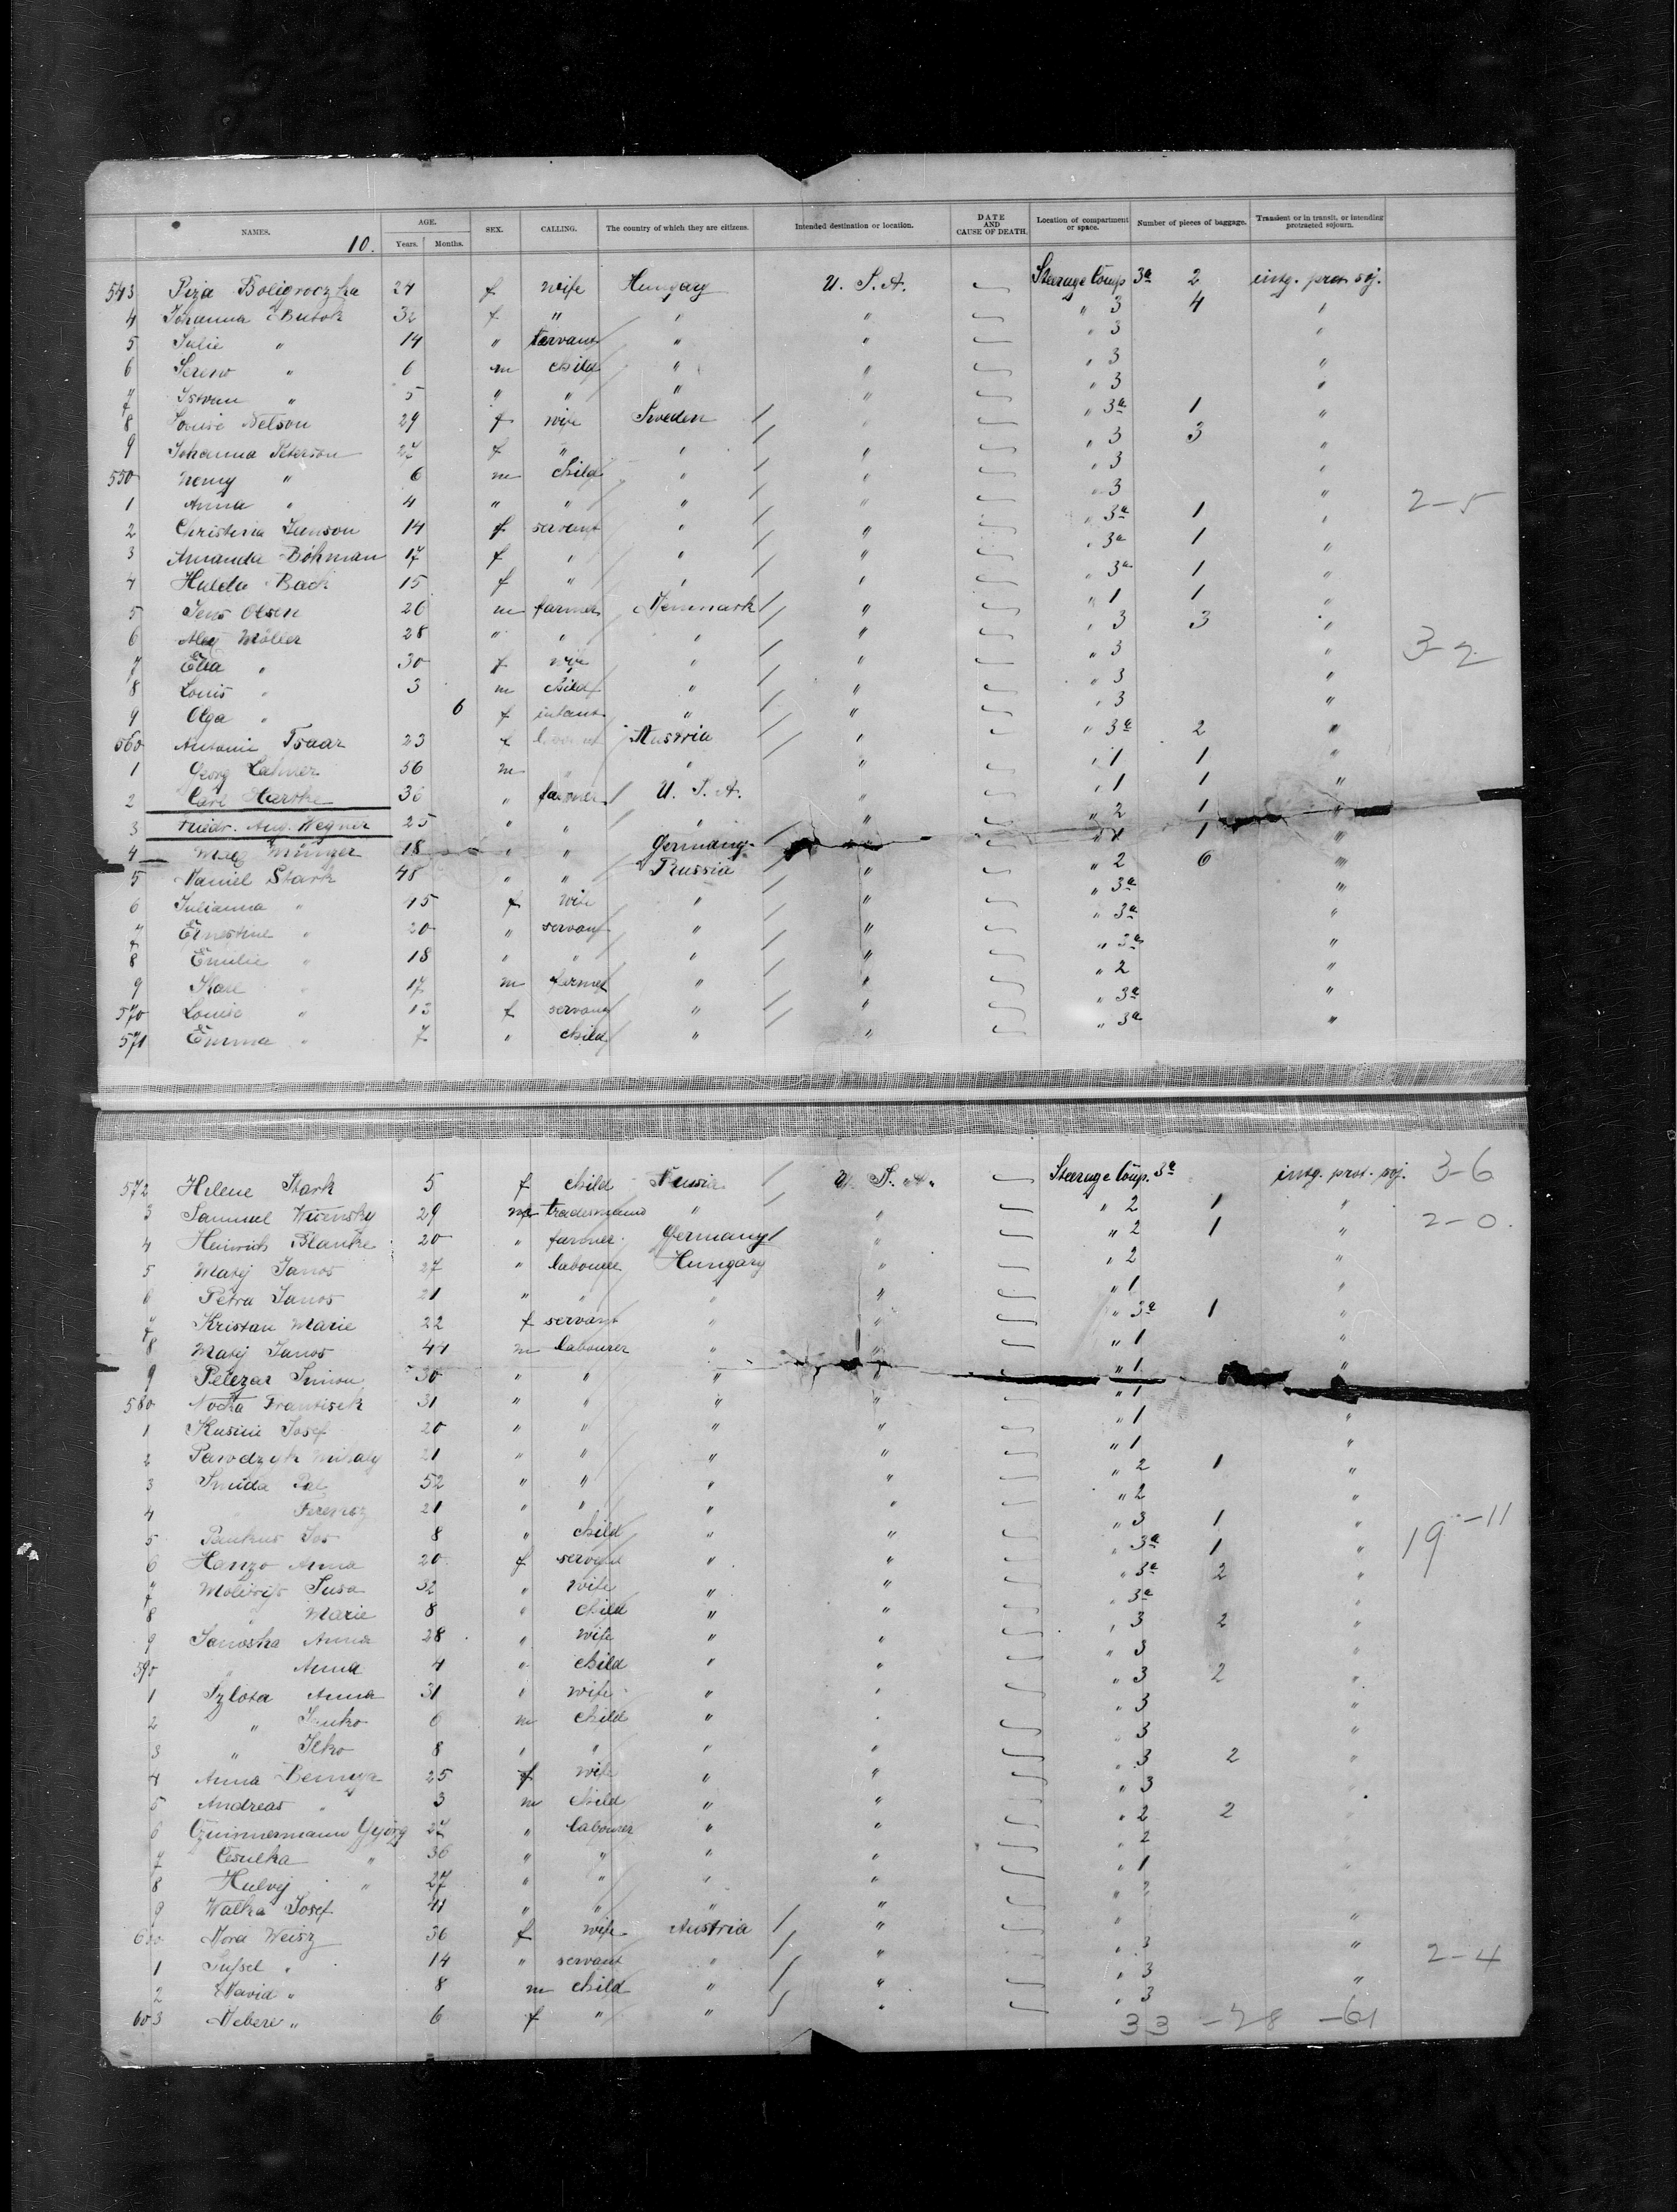 NAMES. AGE. Years. Months. SEX. CALLING. The country of which they are citizens. Intended destination or location. DATE AND CAUSE OF DEATH. Location of compartment or space. Number of pieces of baggage. Transient or in transit, or intending protracted sojourn.
10.
543 24 f wife Hungary U. S. A. Steerage Comp 3a 2 intg. prot. soj.
4 Johanna 32 f " " " " 3 4 "
5 Julie " 14 " servant " " " 3
6 " 6 m child " " " 3 "
7 Istvan " 5 " " " " " 3 "
8 Louise Nelson 29 f wife Sweden " 3a 1 "
9 Johanna Peterson 27 f " " " " 3 3 "
550 Henry " 6 m child " " " 3 "
1 Anna " 4 " " " " " 3 " 2-5
2 Christina Janson 14 f servant " " " 3a 1 "
3 Amanda Bohman 17 f " " " " 3a 1 "
4 Hulda Back 15 f " " " " 3a 1 "
5 Jens Olsen 26 m farmer Denmark " " 1 1 "
6 Möller 28 " " " " " 3 3 "
7 Ella " 30 f wife " " " 3 " 3-2
8 Louis " 3 m child " " " 3 "
9 Olga " 6 f infant " " " 3 "
560 Antonie 23 f Austria " " 3a 2 "
1 Georg Lahner 56 m " " " 1 1 "
2 Carl 36 " farmer U. S. A. " " 1 1 "
3 Friedr. Aug. Wegner 25 " " " " " 2 1 "
4 Münger 18 " " Germany " " 1 1 "
5 Daniel Stark 48 " " Russia " " 2 6 "
6 Julianna " 45 f wife " " " 3a "
7 Ernestine " 20 " servant " " " 3a "
8 Emilie " 18 " " " " " 3a "
9 Karl " 17 m farmer " " " 2 "
570 Louise " 13 f servant " " " 3a "
571 Emma " 7 " child " " " 3a "
572 Helene Stark 5 f child Russia U. S. A. Steerage Comp. 3a intg. prot. soj. 3-6
3 Samuel 29 m tradesmann " " " 2 1 " 2-0.
4 Heinrich Blanke 20 " farmer Germany " " 2 1 "
5 Matej Janos 27 " labourer Hungary " " 2 "
6 Petra Janos 21 " " " " " 1 "
7 Kristan Marie 22 f servant " " " 3a 1 "
8 Matej Janos 44 m labourer " " " 1 "
9 Pelczar Simon 30 " " " " " 1 "
580 Frantisek 31 " " " " " 1
1 Josef 20 " " " " " 1 "
2 Mihaly 21 " " " " " 1 "
3 Smida Pal 52 " " " " " 2 1 "
4 " Ferencz 21 " " " " " 2 "
5 Jos 8 " child " " " 3 1 " 19-11
6 Hanzo Anna 20 f servant " " " 3a 1 "
7 Susa 32 " wife " " " 3a 2 "
8 " Marie 8 " child " " " 3a "
9 Janoska Anna 28 " wife " " " 3 2 "
590 " Anna 4 " child " " " 3 "
1 Szlota Anna 31 " wife " " " 3 2 "
2 " 6 m child " " " 3 "
3 " Ilko 8 " " " " " 3 "
4 Anna 25 f wife " " " 3 2 "
5 Andreas " 3 m child " " " 3
6 Czimmermann György 27 " labourer " " " 2 2
7 " 36 " " " " " 2
8 Hulvej " 27 " " " " " 1
9 Walka Josef 41 " " " " "
600 Weisz 36 f wife Austria " " "
1 " 14 " servant " " " 3 " 2-4
2 David " 8 m child " " " 3 "
603 " 6 f " " " " 3
33 -28 -61